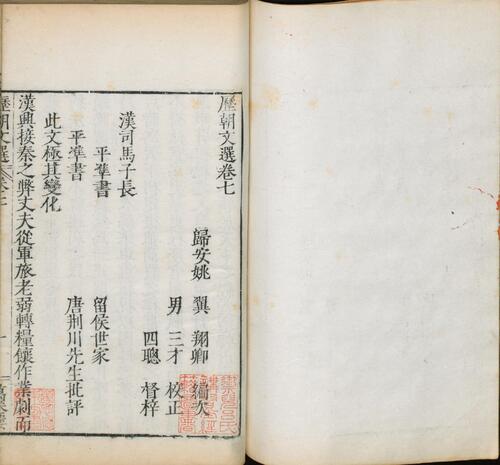 歷朝文選卷七
歸安姚翼翔卿編次
男三才校正
四聰督梓
漢司馬子長
平準書 留侯世家
平準書 唐荆川先生批評
此文極其變化
漢興接秦之弊丈夫從軍旅老弱轉糧饟作業劇而
歷朝文選